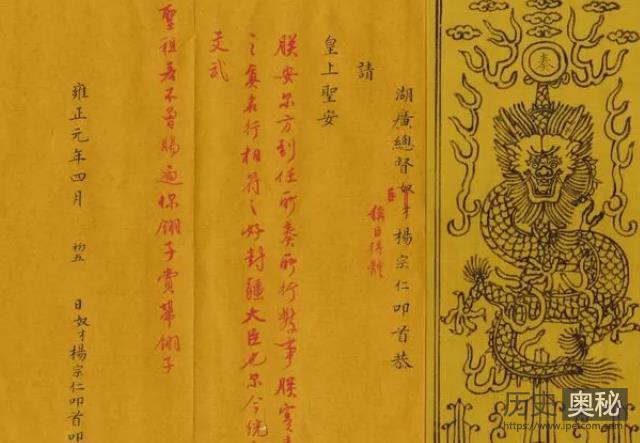 奏
湖廣總督奴才楊宗仁叩首恭
臣
稱臣得體
請
皇上聖安
朕安尔方到任所奏所行数事朕實
之真名行相符之好封疆大臣也尔今統
文武
聖祖若不曾賜過你翎子賞帶翎子
雍正元年四月 初五 日奴才楊宗仁叩首叩
历史奥秘
https://www.ipetcom.com